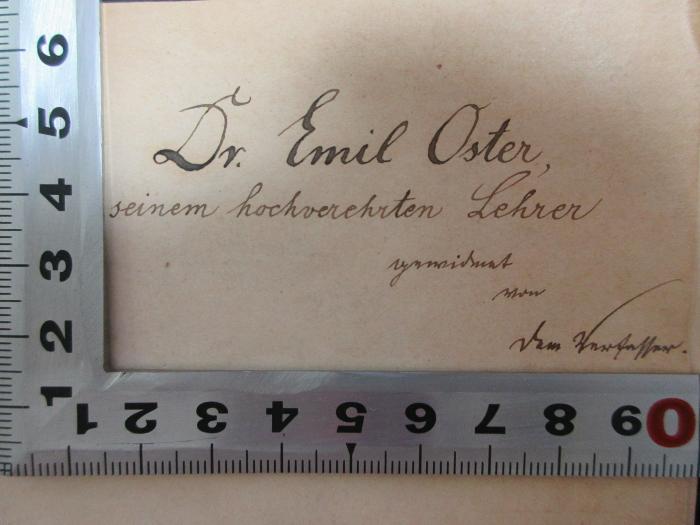 Dr. Emil Oster,
seinem hochverehrten Lehrer
gewidmet
von
dem Verfasser.
6
5
4
3
2
1
1 2 3 4 5 6 7 8 9 0